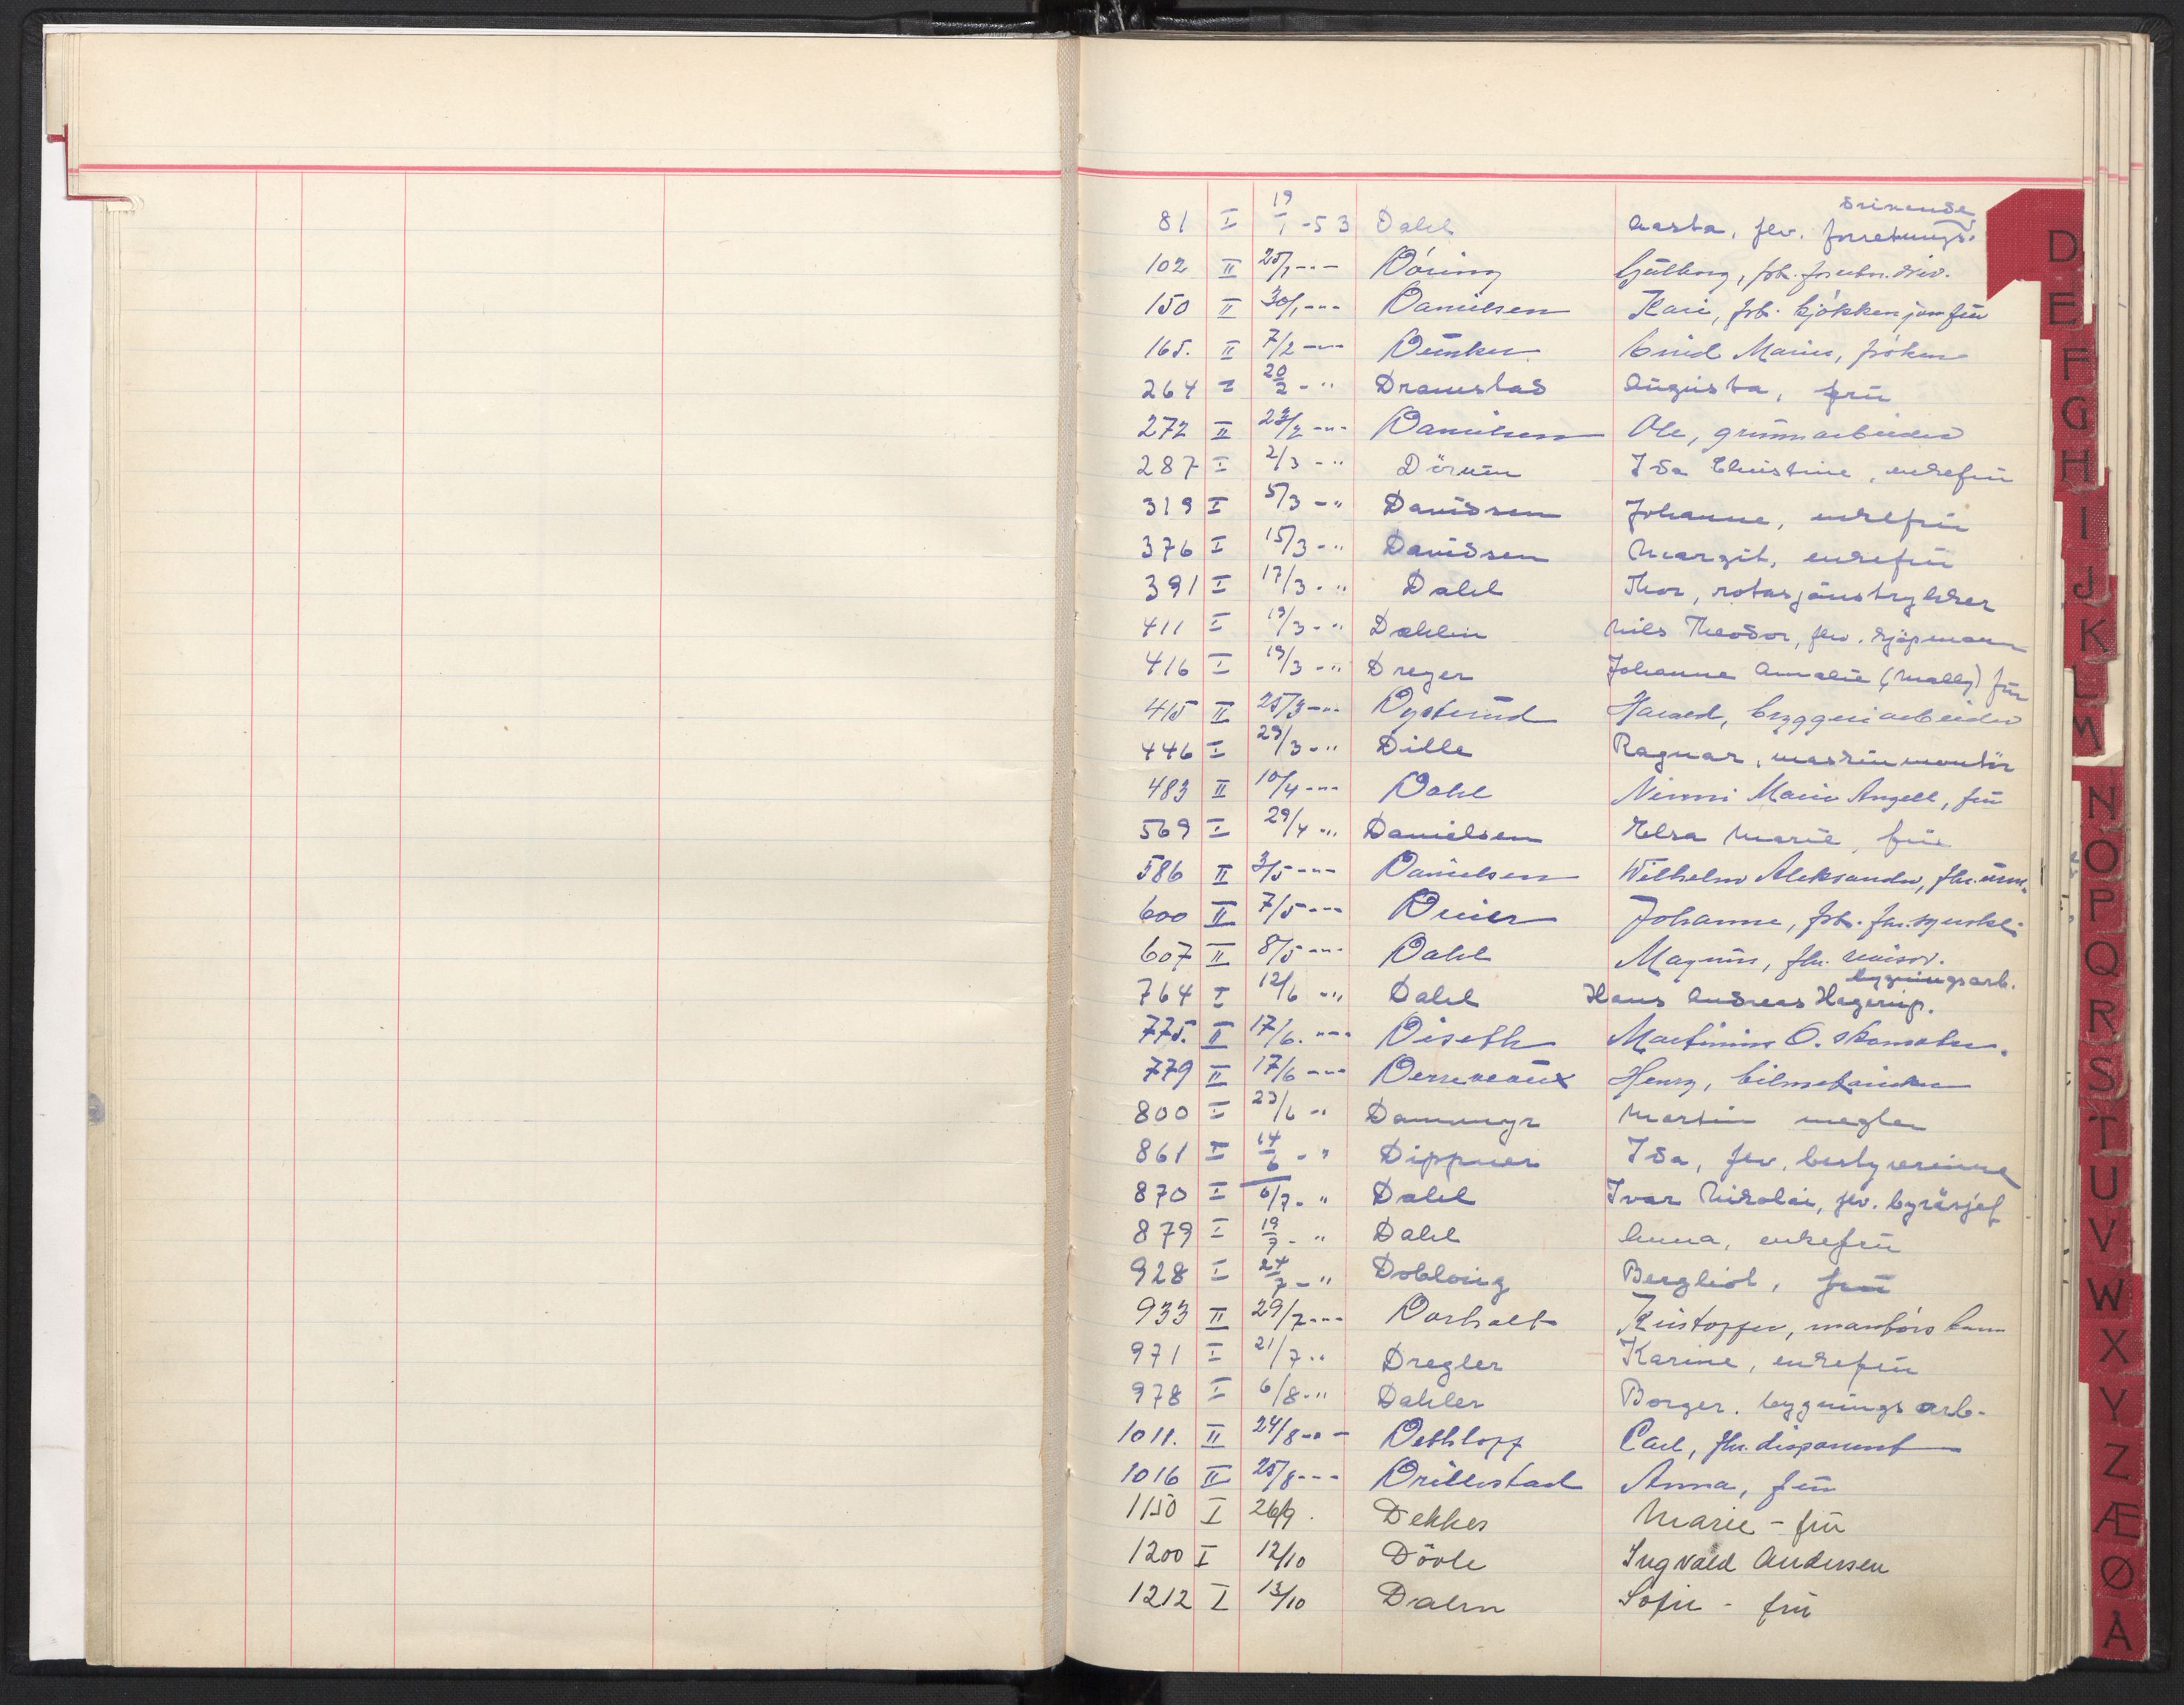 81 I 19/1 -53 Dahl Aasta, fhv. forretnings- drivende
102 II 25/1 -"- Döring Gjälborg, fhv.
150 II 30/1 -"- Danielsen Kari, fhv. kjøkkenjomfru
165. II 7/2 -"- Marie, frøken
264 I 20/2 - " Dramstad Augusta, frü
272 II 23/2 -"- Danielsen Ole, grünnarbeider
287 I 2/3 - " Dörum Ida Christine, enkefrü
319 I 5/3 - " Davidsen Johanne, enkefrü
376 I 15/3 - " Davidsen Margit, enkefrü
391 I 17/3 - " Dahl Thor, rotasjonstrykker
411 I 19/3 - " Dahlin Nils Theodor, fhv. kjøpmann
416 I 19/3 - " Dreyer Johanne Amalie (Mally) frü
415 II 25/3 -"- Dysterüd Harald, bryggeriarbeider
446 I 29/3 - " Dille Ragnar, maskinmontör
483 II 10/4 -"- Dahl Ninni Marie Angell, frü
569 I 29/4 - " Danielsen Elsa Marie, frü
586 II 3/5 -"- Danielsen Wilhelm Aleksander, fhv.
600 II 7/5 -"- Johanne,
607 II 8/5 -"- Dahl Magnüs, fhv. revisor.
764 I 12/6 - " Dahl Hans Andreas Hagerüp. bygningsarb.
775. II 17/6. -"- Diseth Martinius O. skomaker.
779 II 17/6 -"- Derreveaüx Henry, bilmekaniker
800 I 23/6 - " Dammyr Martin megler
861 I 14/6 - " Dippner Ida, fhv. bestyrerinne
870 I 6/7 - " Dahl Ivar Nikolai, fhv. byråsjef
879 I 19/7 - " Dahl Anna, enkefrü
928 I 24/7 - " Dobloug Bergliot, frü
933 II 29/7 -"- Dørholt Kristoffer,
971 I 21/7 - " Dregler Karine, enkefrü
978 I 6/8 - " Dahler Borger. bygnings arb.
1011. II 24/8 -"- Dethloff Carl, fhv. disponent
1016 II 25/8 -"- Drillestad Anna, frü
1150 I 26/9. Dekkes Marie - frü
1200 I 12/10 Døvle Ingvald Andersen
1212 I 13/10 Dalen Sofie - frü
D
E
F
G
H
I
J
K
L
M
N
O
P
Q
R
S
T
U
V
W
X
Y
Z
Æ
Ø
A